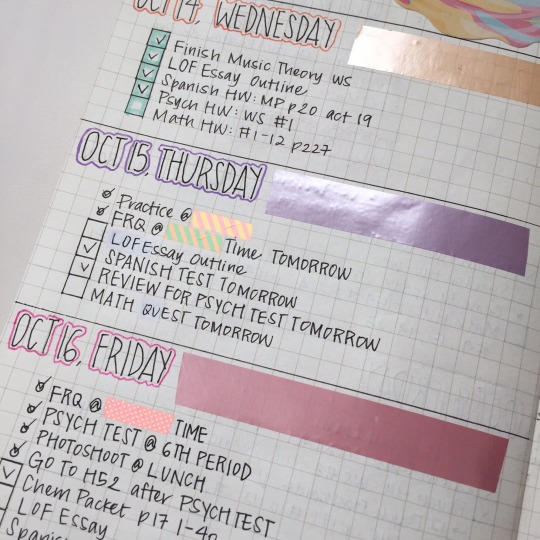 OCT 14, WEDNESDAY
Finish Music Theory WS
LOF Essay Outline
Spanish HW: MP p20 act 19
Psych HW: WS #1
Math HW: #1-12 p227
OCT 15, THURSDAY
Practice @
FRQ @ Time TOMORROW
LOF Essay Outline
SPANISH TEST TOMORROW
REVIEW FOR PSYCH TEST TOMORROW
MATH QUEST TOMORROW
OCT 16, FRIDAY
FRQ @ TIME
PSYCH TEST @ 6TH PERIOD
PHOTOSHOOT @ LUNCH
GO TO H52 after PSYCH TEST
Chem Packet p17 1-4
LOF Essay
Spanish